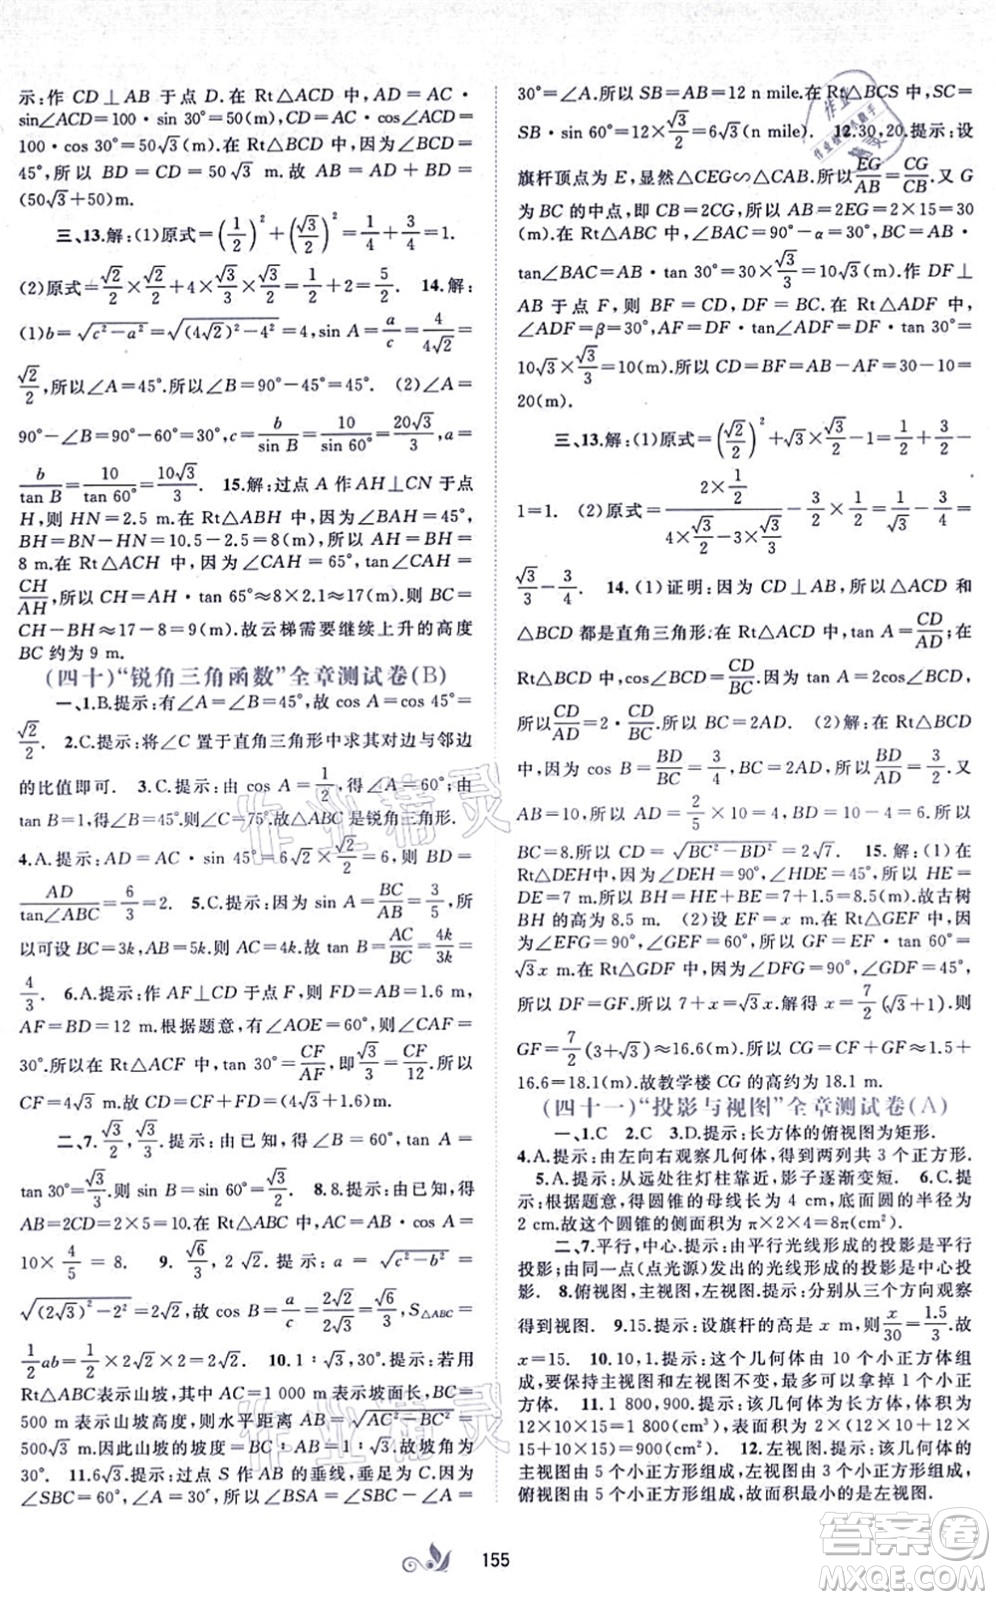 示:作 CD⊥AB 于点 D.在 Rt△ACD 中,AD=AC·
sin∠ACD=100·sin 30°=50(m).CD=AC·cos∠ACD=
100·cos 30°=50√3(m).在 Rt△BCD 中,∠BCD=
45°,所以 BD=CD=50√3 m.故 AB=AD+BD=
(50√3+50)m.
三、13.解:(1)原式=(1/2)²+(√3/2)²=1/4+3/4=1.
(2)原式=√2/2×√2/2+4×√3/2×√3/2×1/4=5/4. 14.解:
(1)b=√(c²-a²)=√((4√2)²-4²)=4,sin A=a/c=4/(4√2)=
√2/2,所以∠A=45°.所以∠B=90°-45°=45°. (2)∠A=
90°-∠B=90°-60°=30°,c=b/sin B=10/sin 60°=20√3/3,a=
b/tan B=10/tan 60°=10√3/3. 15.解:过点 A 作 AH⊥CN 于点
H,则 HN=2.5 m.在 Rt△ABH 中,因为∠BAH=45°,
BH=BN-HN=10.5-2.5=8(m).所以 AH=BH=
8 m.在 Rt△ACH 中,因为∠CAH=65°,tan∠CAH=
CH/AH,所以 CH=AH·tan 65°≈8×2.1≈17(m).则 BC=
CH-BH≈17-8=9(m).故云梯需要继续上升的高度
BC 约为 9 m.
(四十)“锐角三角函数”全章测试卷(B)
一、1.B.提示:有∠A=∠B=45°,故 cos A=cos 45°=
√2/2. 2.C.提示:将∠C 置于直角三角形中求其对边与邻边
的比值即可. 3.C.提示:由 cos A=1/2,得∠A=60°;由
tan B=1,得∠B=45°.则∠C=75°.故△ABC是锐角三角形.
4.A.提示:AD=AC·sin 45°=6√2×√2/2=6,故∠C=
AD/tan∠ABC=6/3=2. 5.C.提示:因为 sin A=BC/AB=3/5,所
以可设 BC=3k,AB=5k.则 AC=4k.故 tan B=AC/BC=4k/3k=
4/3. 6.A.提示:作 AF⊥CD 于点 F,则 FD=AB=1.6 m,
AF=BD=12 m.根据题意,有∠AOE=60°,则∠CAF=
30°.所以在 Rt△ACF 中,tan 30°=CF/AF,即√3/3=CF/12.所以
CF=4√3 m.故大树高为 CD=CF+FD=(4√3+1.6)m.
二、7.√3/2,√3/2.提示:由已知,得∠B=60°,∠A=30°,
tan 30°=√3/3.则 sin B=sin 60°=√3/2. 8.8.提示:由已知,得
AB=2CD=2×5=10.在 Rt△ABC 中,AC=AB·cos A=
10×4/5=8. 9.√6/3,2√2.提示:a=√(c²-b²)=
√((2√3)²-2²)=2√2,故 cos B=a/c=2√2/2√3=√6/3,S△ABC=
1/2ab=1/2×2√2×2=2√2. 10.1∶√3,30°.提示:若用
Rt△ABC表示山坡,其中 AC=1 000 m表示坡面长,BC=
500 m表示山坡高度,则水平距离 AB=√(AC²-BC²)=
500√3 m.因此山坡的坡度=BC∶AB=1∶√3.故坡角为
30°. 11.6√3.提示:过点 S 作 AB 的垂线,垂足为 C.因为
∠SBC=60°,∠A=30°,所以∠BSA=∠SBC-∠A=
30°=∠A.所以 SB=AB=12 n mile.在 Rt△BCS 中,SC=
SB·sin 60°=12×√3/2=6√3(n mile). 12.30,20.提示:设
旗杆顶点为 E,显然△CEG∽△CAB.所以EG/AB=CG/CB.又 G
为 BC 的中点,故 CB=2CG,所以 AB=2EG=2×15=30
(m).在 Rt△ABC 中,∠BAC=90°-α=30°,所以 BC=AB·
tan∠BAC=AB·tan 30°=30×√3/3=10√3(m).作 DF⊥
AB 于点 F,则 BF=CD,DF=BC.在 Rt△ADF 中,
∠ADF=β=30°,故 AF=DF·tan∠ADF=DF·tan 30°=
10√3×√3/3=10(m).所以 CD=BF=AB-AF=30-10=
20(m).
三、13.解:(1)原式=(√2/2)²+√3×√3/2-1=1/2+3/2-
1=1. (2)原式=(2×1/2)/(4×√3/2-3×√3/3)-3/2×1/2=1/√3-3/4=
√3/3-3/4. 14.(1)证明:因为 CD⊥AB,所以△ACD 和
△BCD 都是直角三角形.于是,tan A=CD/AD.在 Rt△BCD
中,cos∠BCD=CD/BC.因为 tan A=2cos∠BCD,
所以CD/AD=2·CD/BC.所以 BC=2AD. (2)解:在 Rt△BCD
中,因为 cos B=BD/BC=3/4,BC=2AD,所以BD/AD=3/2.又
AB=10,所以 AD=2/5×10=4,BD=10-4=6.所以
BC=8.所以 CD=√(BC²-BD²)=2√7. 15.解:(1)在
Rt△DEH中,因为∠DEH=90°,∠HDE=45°,所以 HE=
DE=7 m.所以 BH=HE+BE=7+1.5=8.5(m).故古树
BH 的高为 8.5 m. (2)设 EF=x m.在 Rt△GEF 中,因为
∠EFG=90°,∠GEF=60°,所以 GF=EF·tan 60°=
√3x m.在 Rt△GDF 中,因为∠DFG=90°,∠GDF=45°,
所以 DF=GF.所以 7+x=√3x.所以 x=7/2(√3+1).则
GF=7/2(3+√3)≈16.6(m).所以 CG=CF+GF≈1.5+
16.6=18.1(m).故教学楼 CG 的高约为 18.1 m.
(四十一)“投影与视图”全章测试卷(A)
一、1.C 2.C 3.D.提示:长方体的俯视图为矩形.
4.A.提示:由左向右观察几何体,得到两列共 3 个正方形.
5.A.提示:从远处往灯柱靠近,影子逐渐变短. 6.C.提
示:根据题意,得圆锥的母线长为 4 cm,底面圆的半径为
2 cm.故这个圆锥的侧面积为π×2×4=8π(cm²).
二、7.平行,中心.提示:由平行光线形成的投影是平行
投影;由同一点(点光源)发出的光线形成的投影是中心投
影. 8.俯视图,主视图,左视图.提示:分别从三个方向观察
得到视图. 9.15.提示:设旗杆的高是 x m,则x/30=1.5/3.故
x=15. 10.10.提示:这个几何体由 10 个小正方体组
成,要保持主视图和左视图不变,最多可以拿掉 1 个小正方
体. 11.1 800,900.提示:该几何体为长方体,体积为
12×10×15=1 800(cm³),表面积为 2×(12×10+12×
15+10×15)=900(cm²). 12.左视图.提示:该几何体的
主视图由 5 个小正方形组成,左视图由 3 个小正方形组成,
俯视图由 5 个小正方形组成,故面积最小的是左视图.
155
作业精灵
作业精灵
答案圈
MXQE.COM